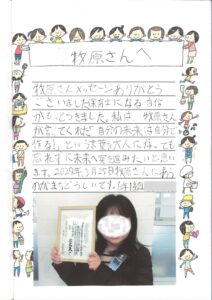 牧原さんへ
牧原さんメッセージありがとう
ございました保育士になる自信
がもっとつきました。私は 牧原さん
が言ってくれた「自分の未来は自分で
作る!」という言葉を大人になっても
忘れずに未来へ突き進みたいと思い
ます。2029年3月25日牧原さんにあう
のがまちどうしいです。